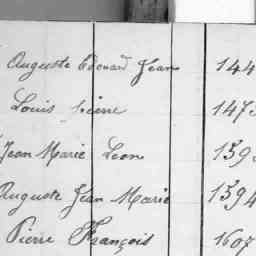 Auguste Edouard Jean 144
Louis Pierre 1473
Jean Marie Leon 139
Auguste Jean Marie 1394
Pierre François 1607